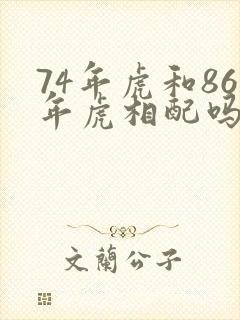 74年虎和86
年虎相配吗
文蘭公子